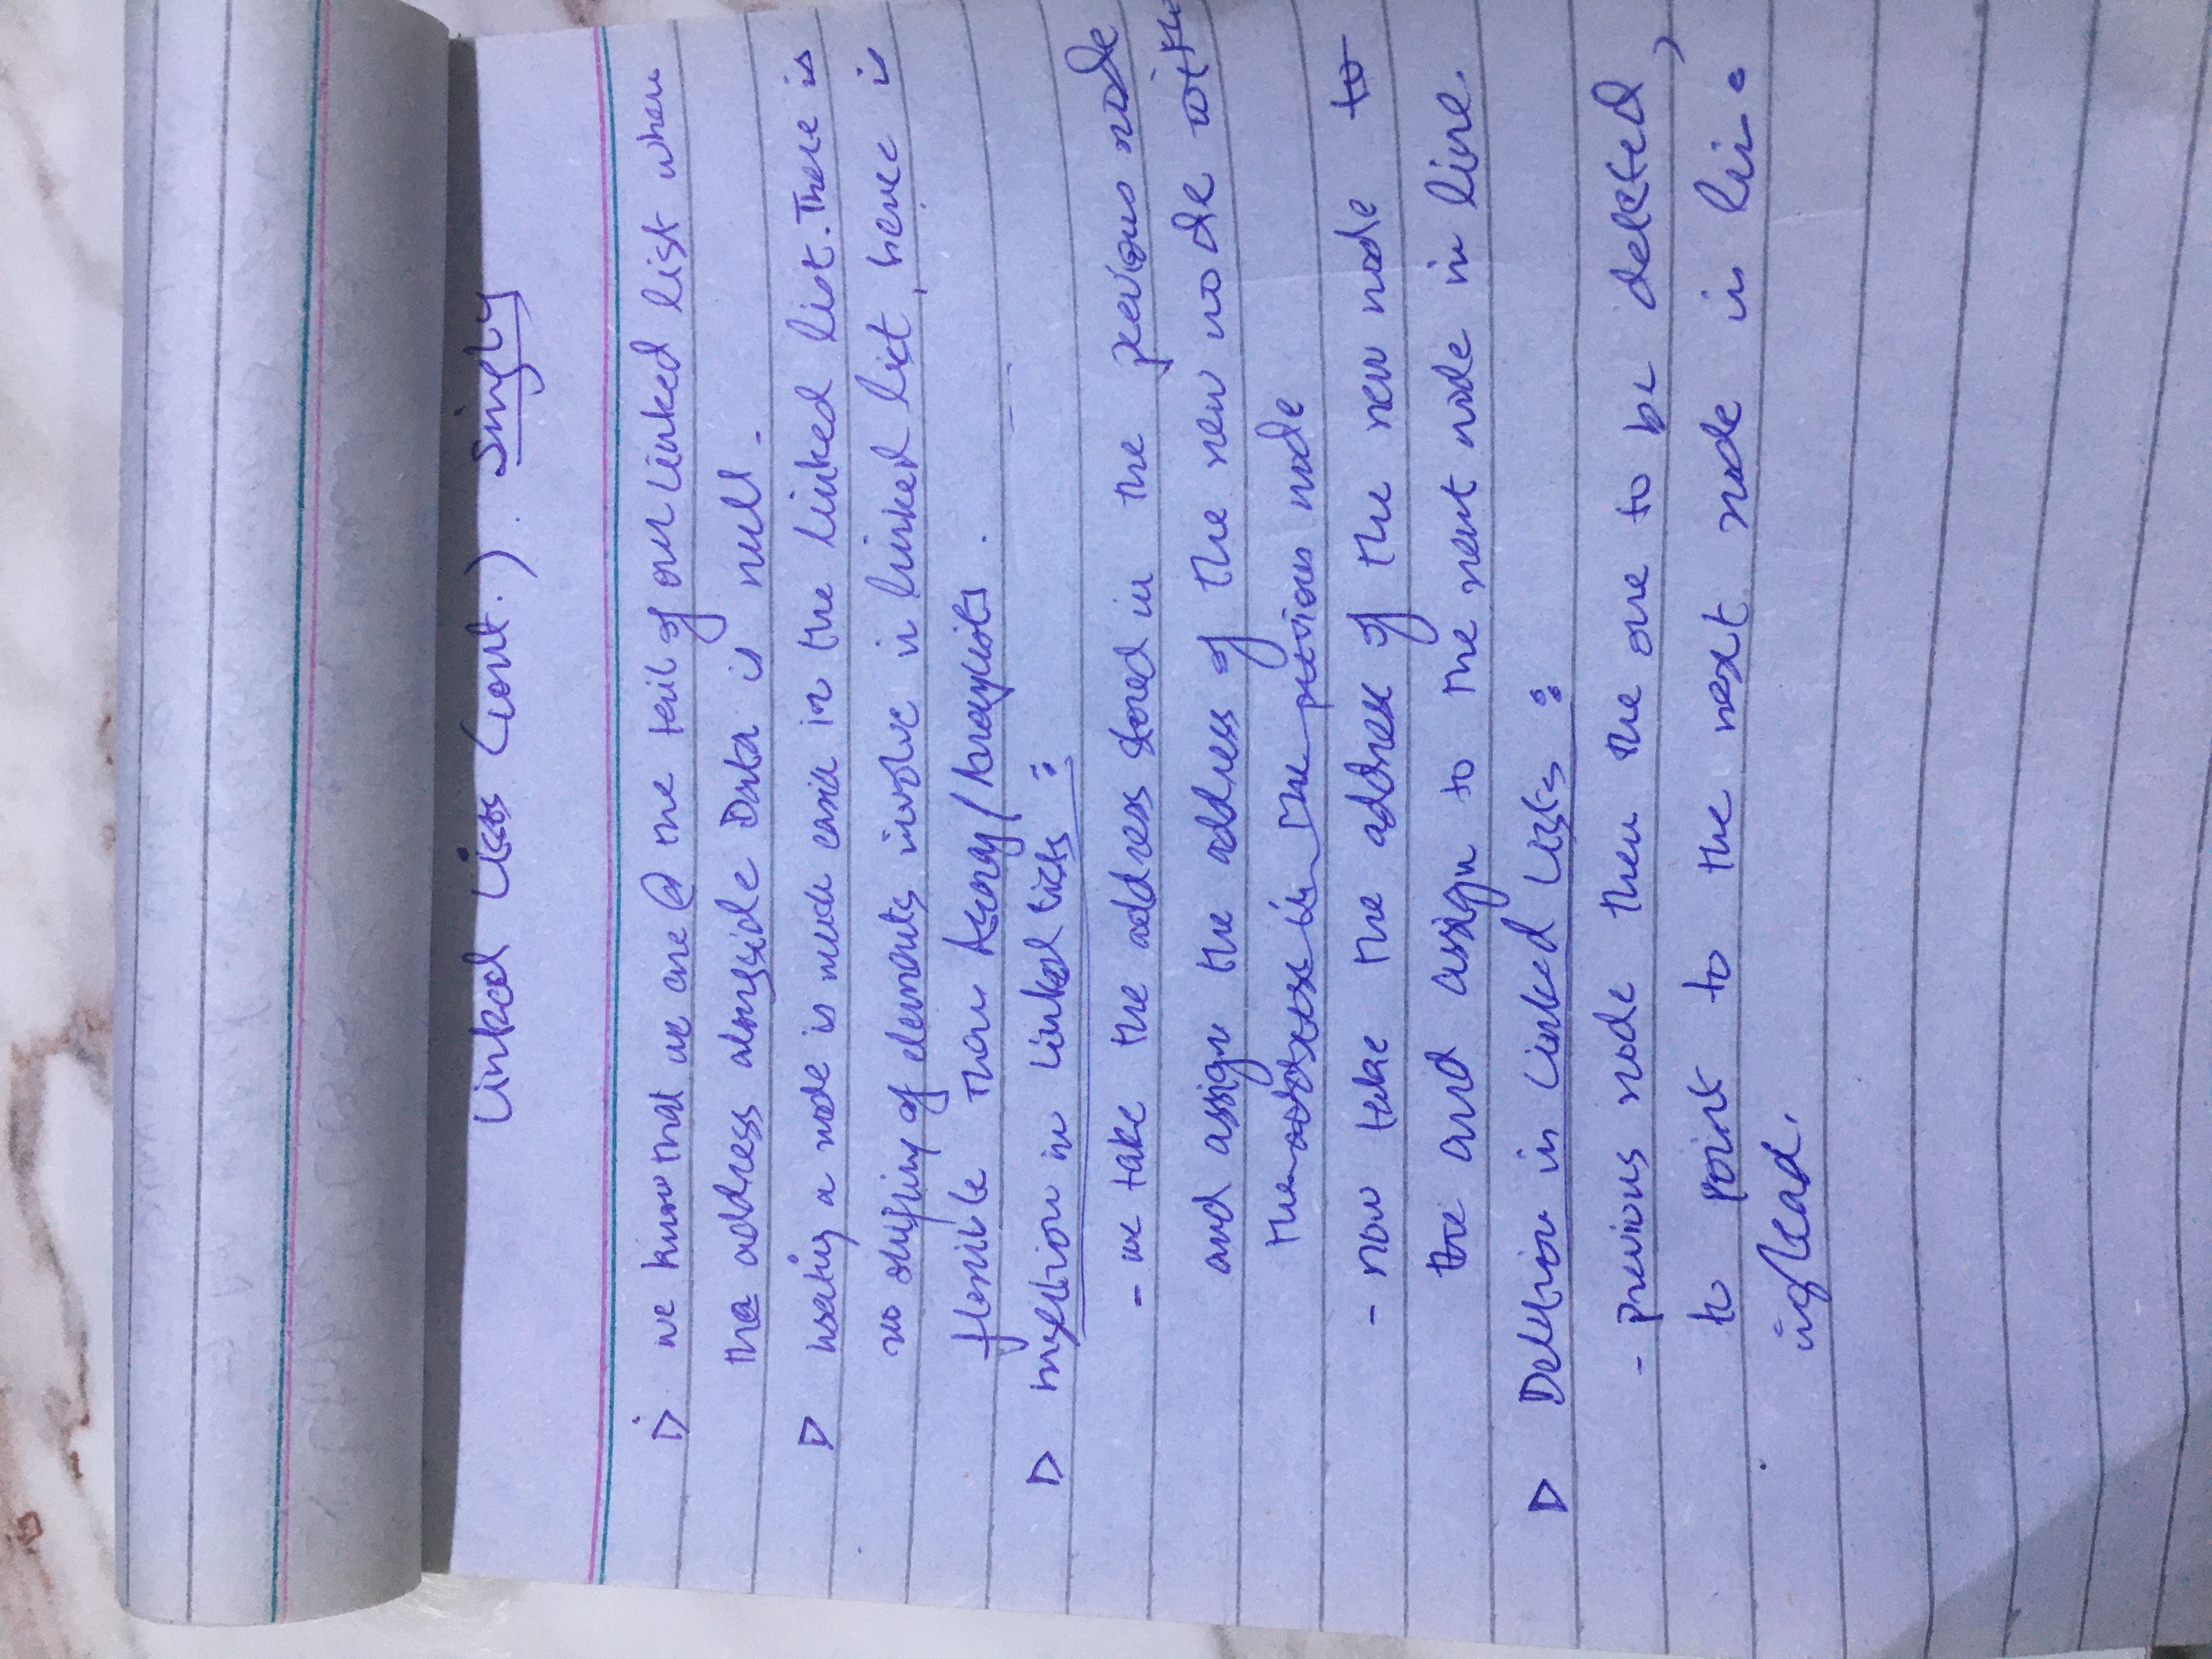 Linked Lists (cont.). Singly
we know that we are @ the tail of our linked list when
the address alongside Data is null.
Inserting a node is much easier in the linked list. There is
no shifting of elements involve in linked list, hence is
flexible than Array/ArrayLists.
Insertion in Linked Lists :
- we take the address stored in the previous node
and assign the address of the new node with
the address in the previous node
- now take the address of the new node to
the and assign to the next node in line.
Deletion in Linked Lists :
- previous node then the one to be deleted,
to point to the next node in line
instead.